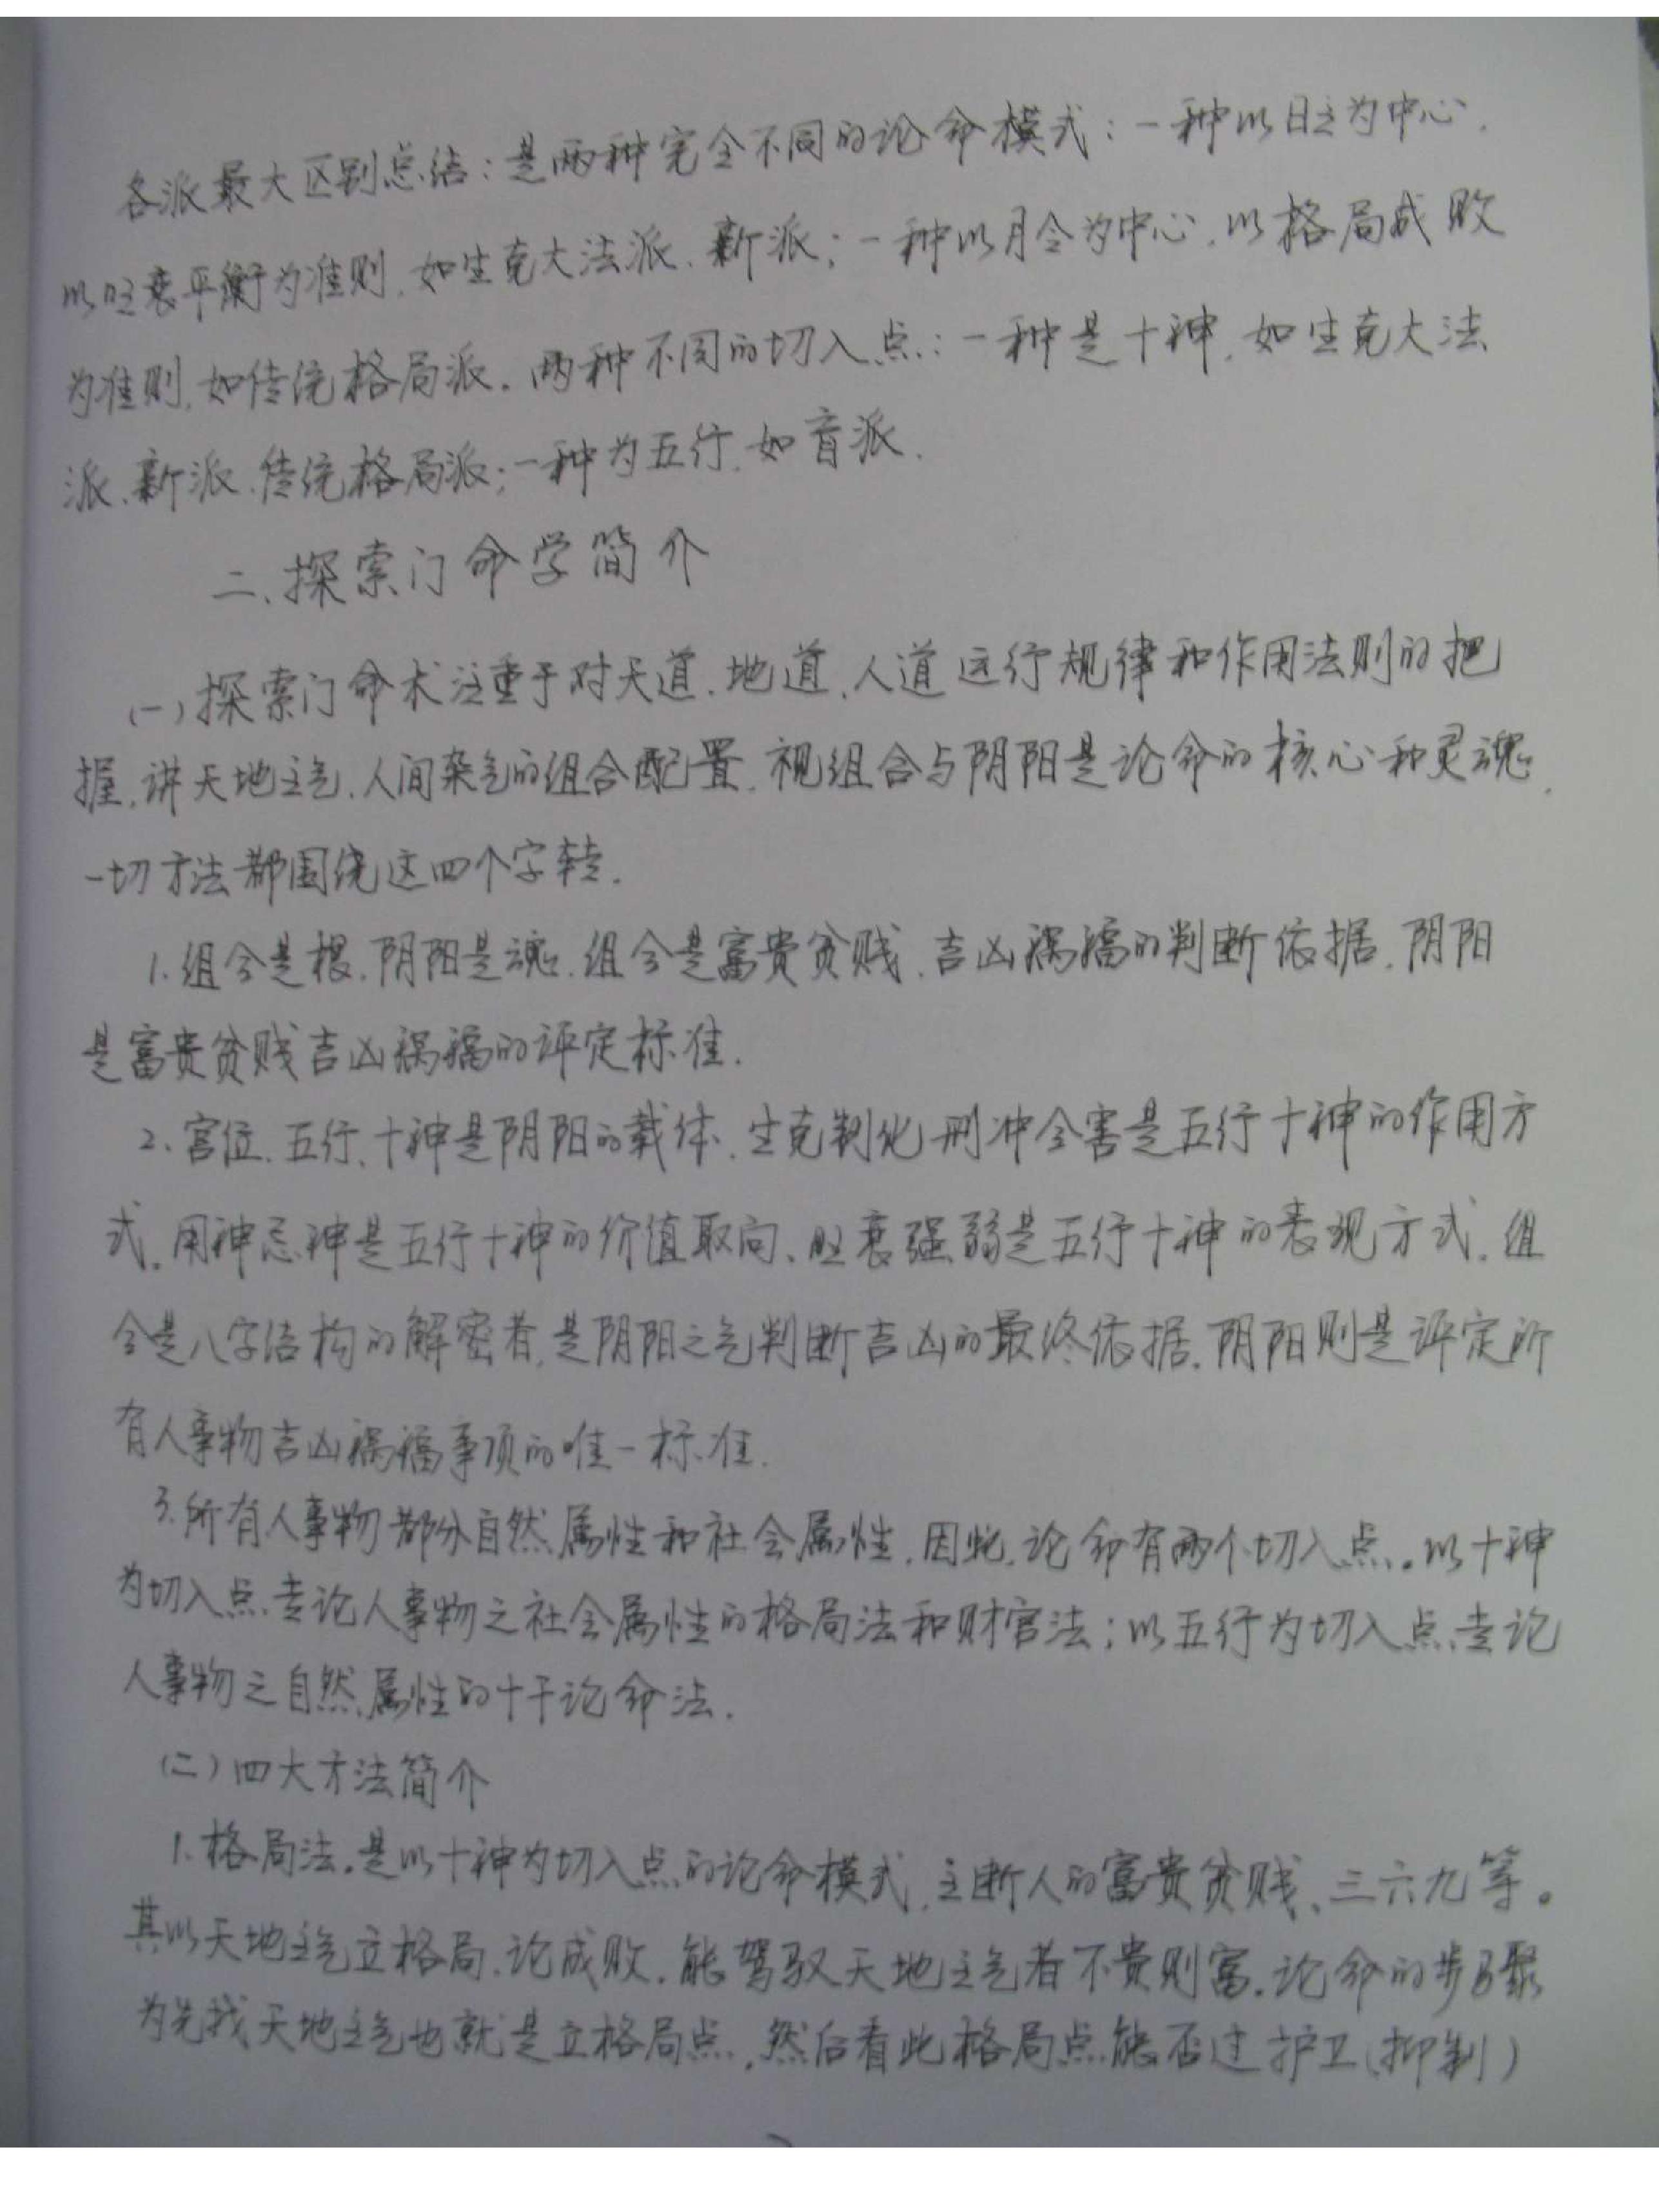 各派最大区别总结：是两种完全不同的论命模式：一种以日主为中心，
以旺衰平衡为准则，如生克大法派、新派；一种以月令为中心，以格局成败
为准则，如传统格局派。两种不同的切入点：一种是十神，如生克大法
派、新派、传统格局派；一种为五行，如盲派。
二、探索门命学简介
(一)探索门命术注重于对天道、地道、人道运行规律和作用法则的把
握，讲天地主气、人间杂气的组合配置，视组合与阴阳是论命的核心和灵魂，
一切方法都围绕这四个字转。
1.组合是根，阴阳是魂，组合是富贵贫贱、吉凶祸福的判断依据，阴阳
是富贵贫贱吉凶祸福的评定标准。
2.宫位、五行、十神是阴阳的载体，生克制化刑冲合害是五行十神的作用方
式。用神忌神是五行十神的价值取向、旺衰强弱是五行十神的表现方式，组
合是八字结构的解密者，是阴阳之气判断吉凶的最终依据。阴阳则是评定所
有人事物吉凶祸福事项的唯一标准。
3.所有人事物都分自然属性和社会属性，因此，论命有两个切入点。以十神
为切入点、专论人事物之社会属性的格局法和财官法；以五行为切入点、专论
人事物之自然属性的十干论命法。
(二)四大方法简介
1.格局法。是以十神为切入点的论命模式，主断人的富贵贫贱、三六九等。
其以天地主气立格局、论成败，能驾驭天地主气者不贵则富。论命的步骤
为先找天地主气也就是立格局点，然后看此格局点能否过护卫(抑制)